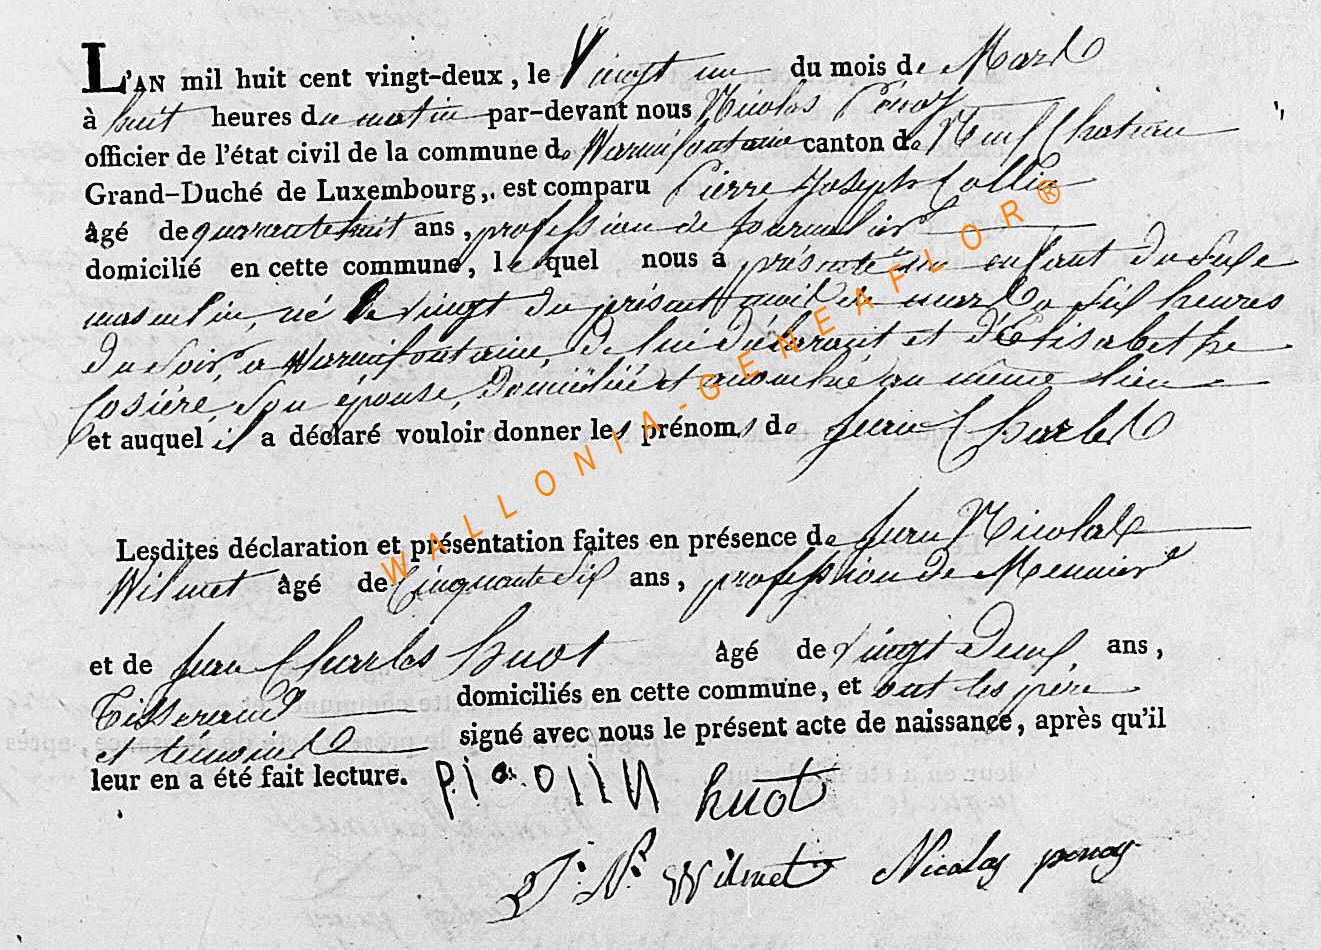 L'AN mil huit cent vingt-deux, le Vingt un du mois de Mars
à huit heures du matin par-devant nous Nicolas Penoy
officier de l'état civil de la commune de Warmifontaine canton de Neufchateau
Grand-Duché de Luxembourg, est comparu Pierre Joseph Collin
âgé de quarante huit ans, profession de journalier
domicilié en cette commune, lequel nous a présenté un enfant du sexe
masculin, né le vingt du présent mois de mars a six heures
du soir, a Warmifontaine, de lui déclarant et d'Elisabethe
Cosière, son épouse, Domiciliée et au même lieu
et auquel il a déclaré vouloir donner les prénoms de Jean Charles
Lesdites déclaration et présentation faites en présence de Jean Nicolas
Wilmet âgé de Cinquante six ans, profession de Meunier
et de Jean Charles huot âgé de vingt Deux ans,
Tisserand domiciliés en cette commune, et ont les père
et témoins signé avec nous le présent acte de naissance, après qu'il
leur en a été fait lecture.
huot
J. N. Wilmet Nicolas penoy
WALLONIA-GENEAFLOR®